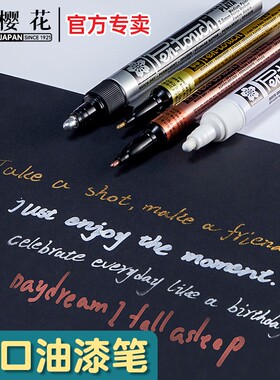 樱花 官方专卖
JAPAN SINCE 1921
Pen-touch
Take a shot, make a friend
Just enjoy the moment.
Celebrate everyday like a birthday
Daydream I fall asleep
口油漆笔